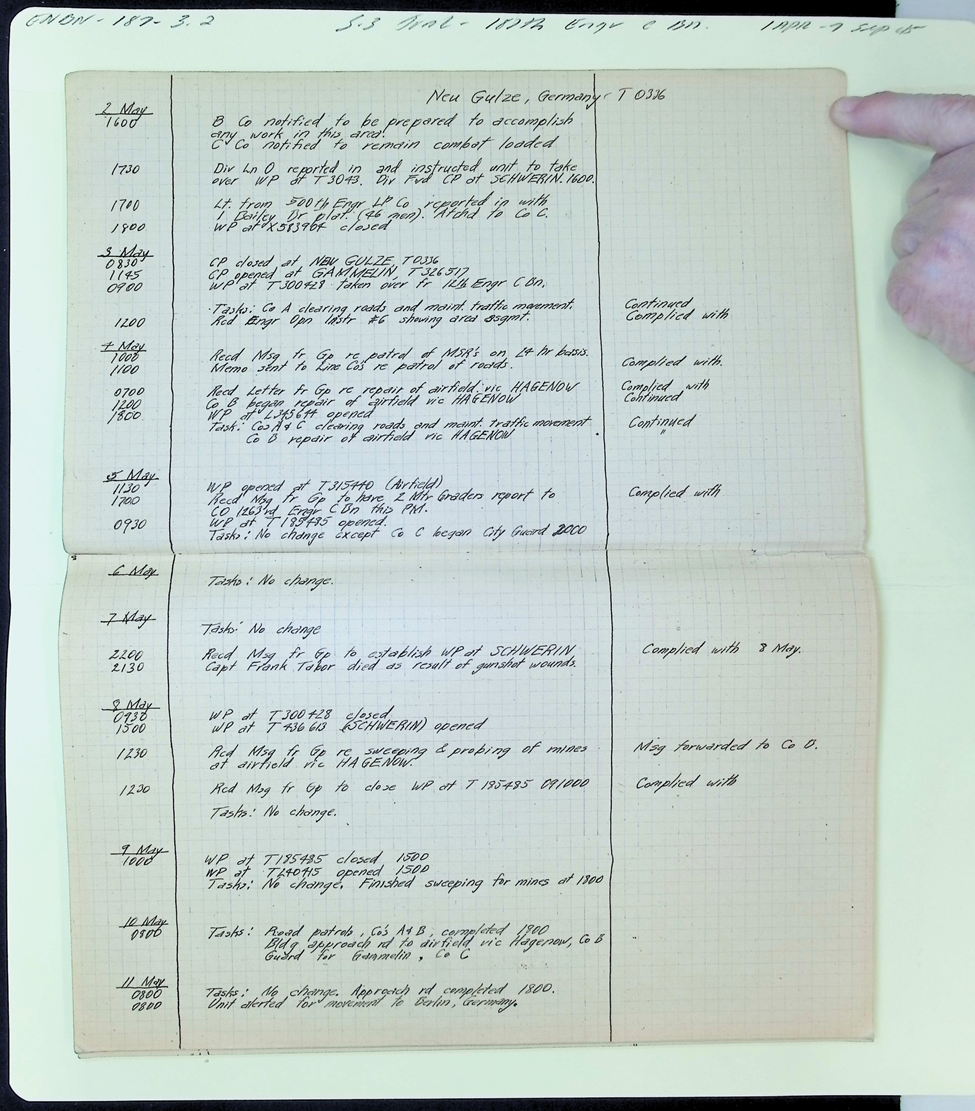 ENBN-187-3.2 S-3 Jnl- 187th Engr C Bn. 1 APR-7 Sep 45
Neu Gulze, Germany T 0336
2 May
1600 B Co notified to be prepared to accomplish
any work in this area.
C Co notified to remain combat loaded
1730 Div Ln O reported in and instructed unit to take
over WP at T3043. Div Fwd CP at SCHWERIN.1600.
1700 Lt. from 500th Engr LP Co reported in with
1 Bailey Br plat. (46 men). Atchd to Co C.
1900 WP at X583904 closed
3 May
0830 CP closed at NEW GULZE, T0336
1145 CP opened at GAMMELIN, T326517
0900 WP at T300428 taken over fr 1216 Engr C Bn.
Tasks: Co A clearing roads and maint. traffic movement. Continued
1200 Rcd Engr Opn Instr #6 showing area asgmt. Complied with
4 May
1000 Recd Msg fr Gp re patrol of MSR's on 24 hr basis.
1100 Memo sent to Line Co's re patrol of roads. Complied with.
0700 Recd Letter fr Gp re repair of airfield vic HAGENOW Complied with
1200 Co B began repair of airfield vic HAGENOW Continued
1800 WP at opened
Task: Cos A & C clearing roads and maint. traffic movement. Continued
Co B repair of airfield vic HAGENOW "
5 May
1130 WP opened at T315440 (Airfield)
1700 Recd Msg fr Gp to have 2 Mtr Graders report to Complied with
CO 1263rd Engr C Bn this PM.
0930 WP at T185485 opened.
Tasks: No change except Co C began City Guard 2000
6 May
Tasks: No change.
7 May
Tasks: No change
2200 Recd Msg fr Gp to establish WP at SCHWERIN Complied with 8 May.
2130 Capt Frank Tabor died as result of gunshot wounds.
8 May
0930 WP at T300428 closed
1500 WP at T436613 (SCHWERIN) opened
1230 Rcd Msg fr Gp re sweeping & probing of mines Msg forwarded to Co B.
at airfield vic HAGENOW.
1230 Rcd Msg fr Gp to close WP at T 185485 091000 Complied with
Tasks: No change.
9 May
1000 WP at T185485 closed 1500
WP at T240415 opened 1500
Tasks: No change. Finished sweeping for mines at 1800
10 May
0800 Tasks: Road patrols, Co's A & B, completed 1900
Bldg approach rd to airfield vic Hagenow, Co B
Guard for Gammelin, Co C
11 May
0800 Tasks: No change. Approach rd completed 1800.
0800 Unit alerted for movement to Berlin, Germany.